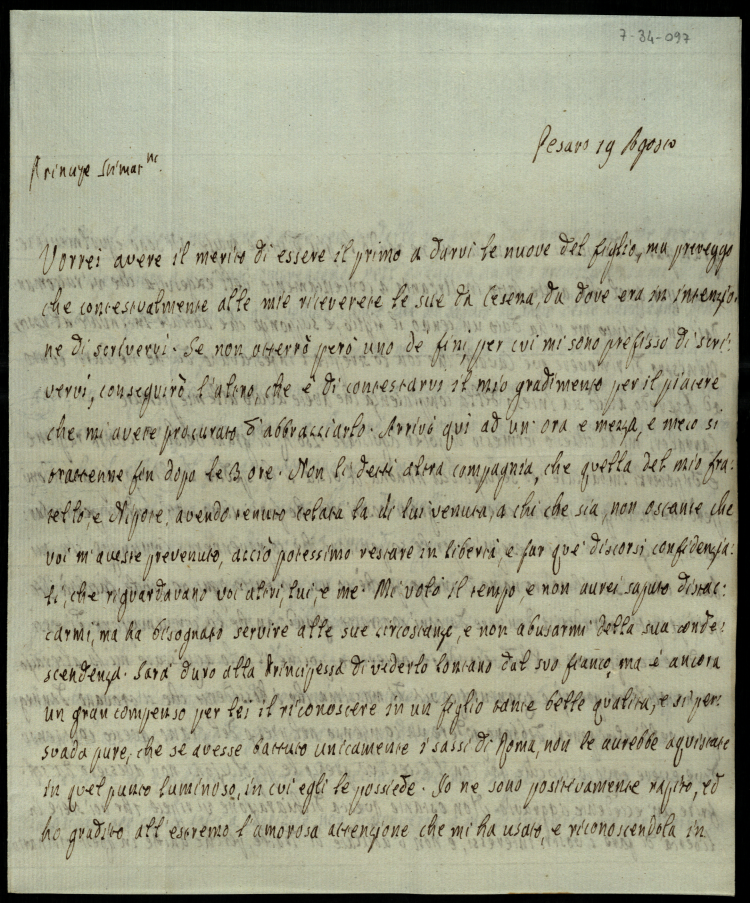 7-34-097
Pesaro 19 Agosto
Principe Stimat.mo
Vorrei avere il merito di essere il primo a darvi le nuove del figlio, ma preveggo
che contestualmente alle mie riceverete le sue da Cesena, da dove era in intenzio:
ne di scrivervi. Se non otterrò però uno de fini, per cui mi sono prefisso di scri:
vervi, conseguirò l'altro, che è di contestarvi il mio gradimento per il piacere
che mi avete procurato d'abbracciarlo. Arrivò quì ad un'ora e mezza, e meco si
trattenne fin dopo le 3 ore. Non li detti altra compagnia, che quella del mio fra:
tello, e Nipote, avendo tenuto celata la di lui venuta, a chi che sia, non ostante che
voi m'aveste prevenuto, acciò potessimo restare in libertà, e far que' discorsi confidenzia:
li, che riguardavano voi altri, lui, e me. Mi volò il tempo, e non aurei saputo distac:
carmi, ma ha bisognato servire alle sue circostanze, e non abusarmi della sua conde:
scendenza. Sarà duro alla Principessa di vederlo lontano dal suo fianco, ma è ancora
un gran compenso per lei il riconoscere in un figlio tante belle qualità, e si per:
svada pure, che se avesse battuto unicamente i sassi di Roma, non le aurebbe aquistate
in quel punto luminoso, in cui egli le possiede. Io ne sono positivamente rapito, ed
ho gradito all'estremo l'amorosa attenzione che mi ha usato, e riconoscendola in